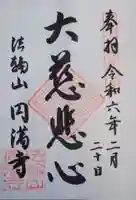 奉拝 令和六年二月二十日
大慈悲心
法輪山 円満寺